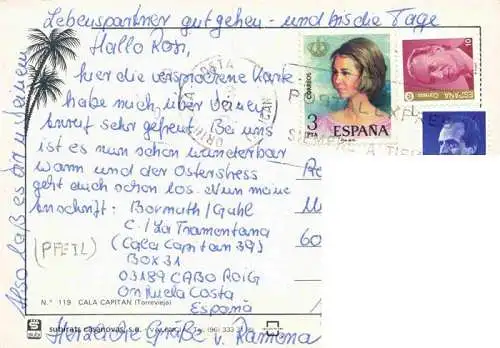 Lebenspartner gut gehen – und bis die Tage
Hallo Rosi,
hier die versprochene Karte.
habe mich über deinen
Anruf sehr gefreut. Bei uns
ist es nun schon wunderbar
warm und der Osterstress
geht auch schon los. Nun meine
Anschrift: Bormuth/Guhl
C./La Tramontana
(Cala Capitan 39)
(PFEIL)
BOX 31
03189 CABO ROIG
Orihuela Costa
Espana
N.º 119 CALA CAPITAN (Torrevieja)
subirats casanovas, s.a. - VALENCIA - Tel. (96) 333
Herzliche Grüße v. Ramona
Also laß es dir u. deinem
CORREOS
3
ESPAÑA
10
ESPAÑA
Correos
POSTAL EXPRES
SIEMPRE A TIEM
60